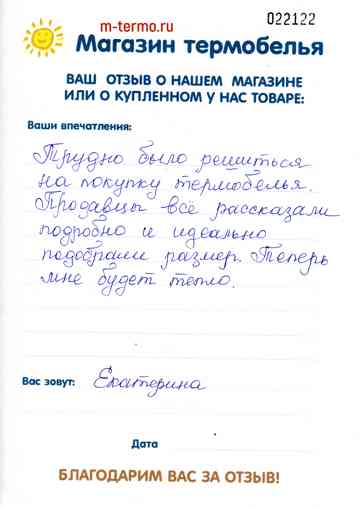 m-termo.ru
022122
Магазин термобелья
ВАШ ОТЗЫВ О НАШЕМ МАГАЗИНЕ
ИЛИ О КУПЛЕННОМ У НАС ТОВАРЕ:
Ваши впечатления:
Трудно было решиться
на покупку термобелья.
Продавцы всё рассказали
подробно и идеально
подобрали размер. Теперь
мне будет тепло.
Вас зовут: Екатерина
Дата
БЛАГОДАРИМ ВАС ЗА ОТЗЫВ!